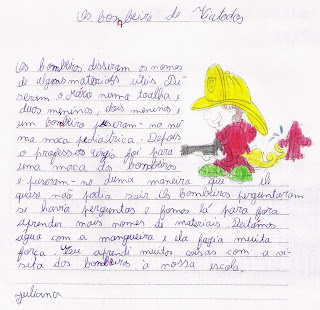 Os bombeiros de Viatodos
Os bombeiros disseram os nomes
de alguns materiais úteis. Pu-
seram o Mário numa toalha e
duas meninas, dois meninos e
um bombeiro puseram-no nu-
ma maca pediatrica. Depois
o professor Sérgio foi para
uma maca dos bombeiros
e puseram-no duma maneira que ele
quase não podia sair. Os bombeiros perguntaram
se havia perguntas e fomos lá para fora
aprender mais nomes de materiais. Deitamos
água com a mangueira e ela fazia muita
força. Eu aprendi muitas coisas com a vi-
sita dos bombeiros à nossa escola.
Juliana